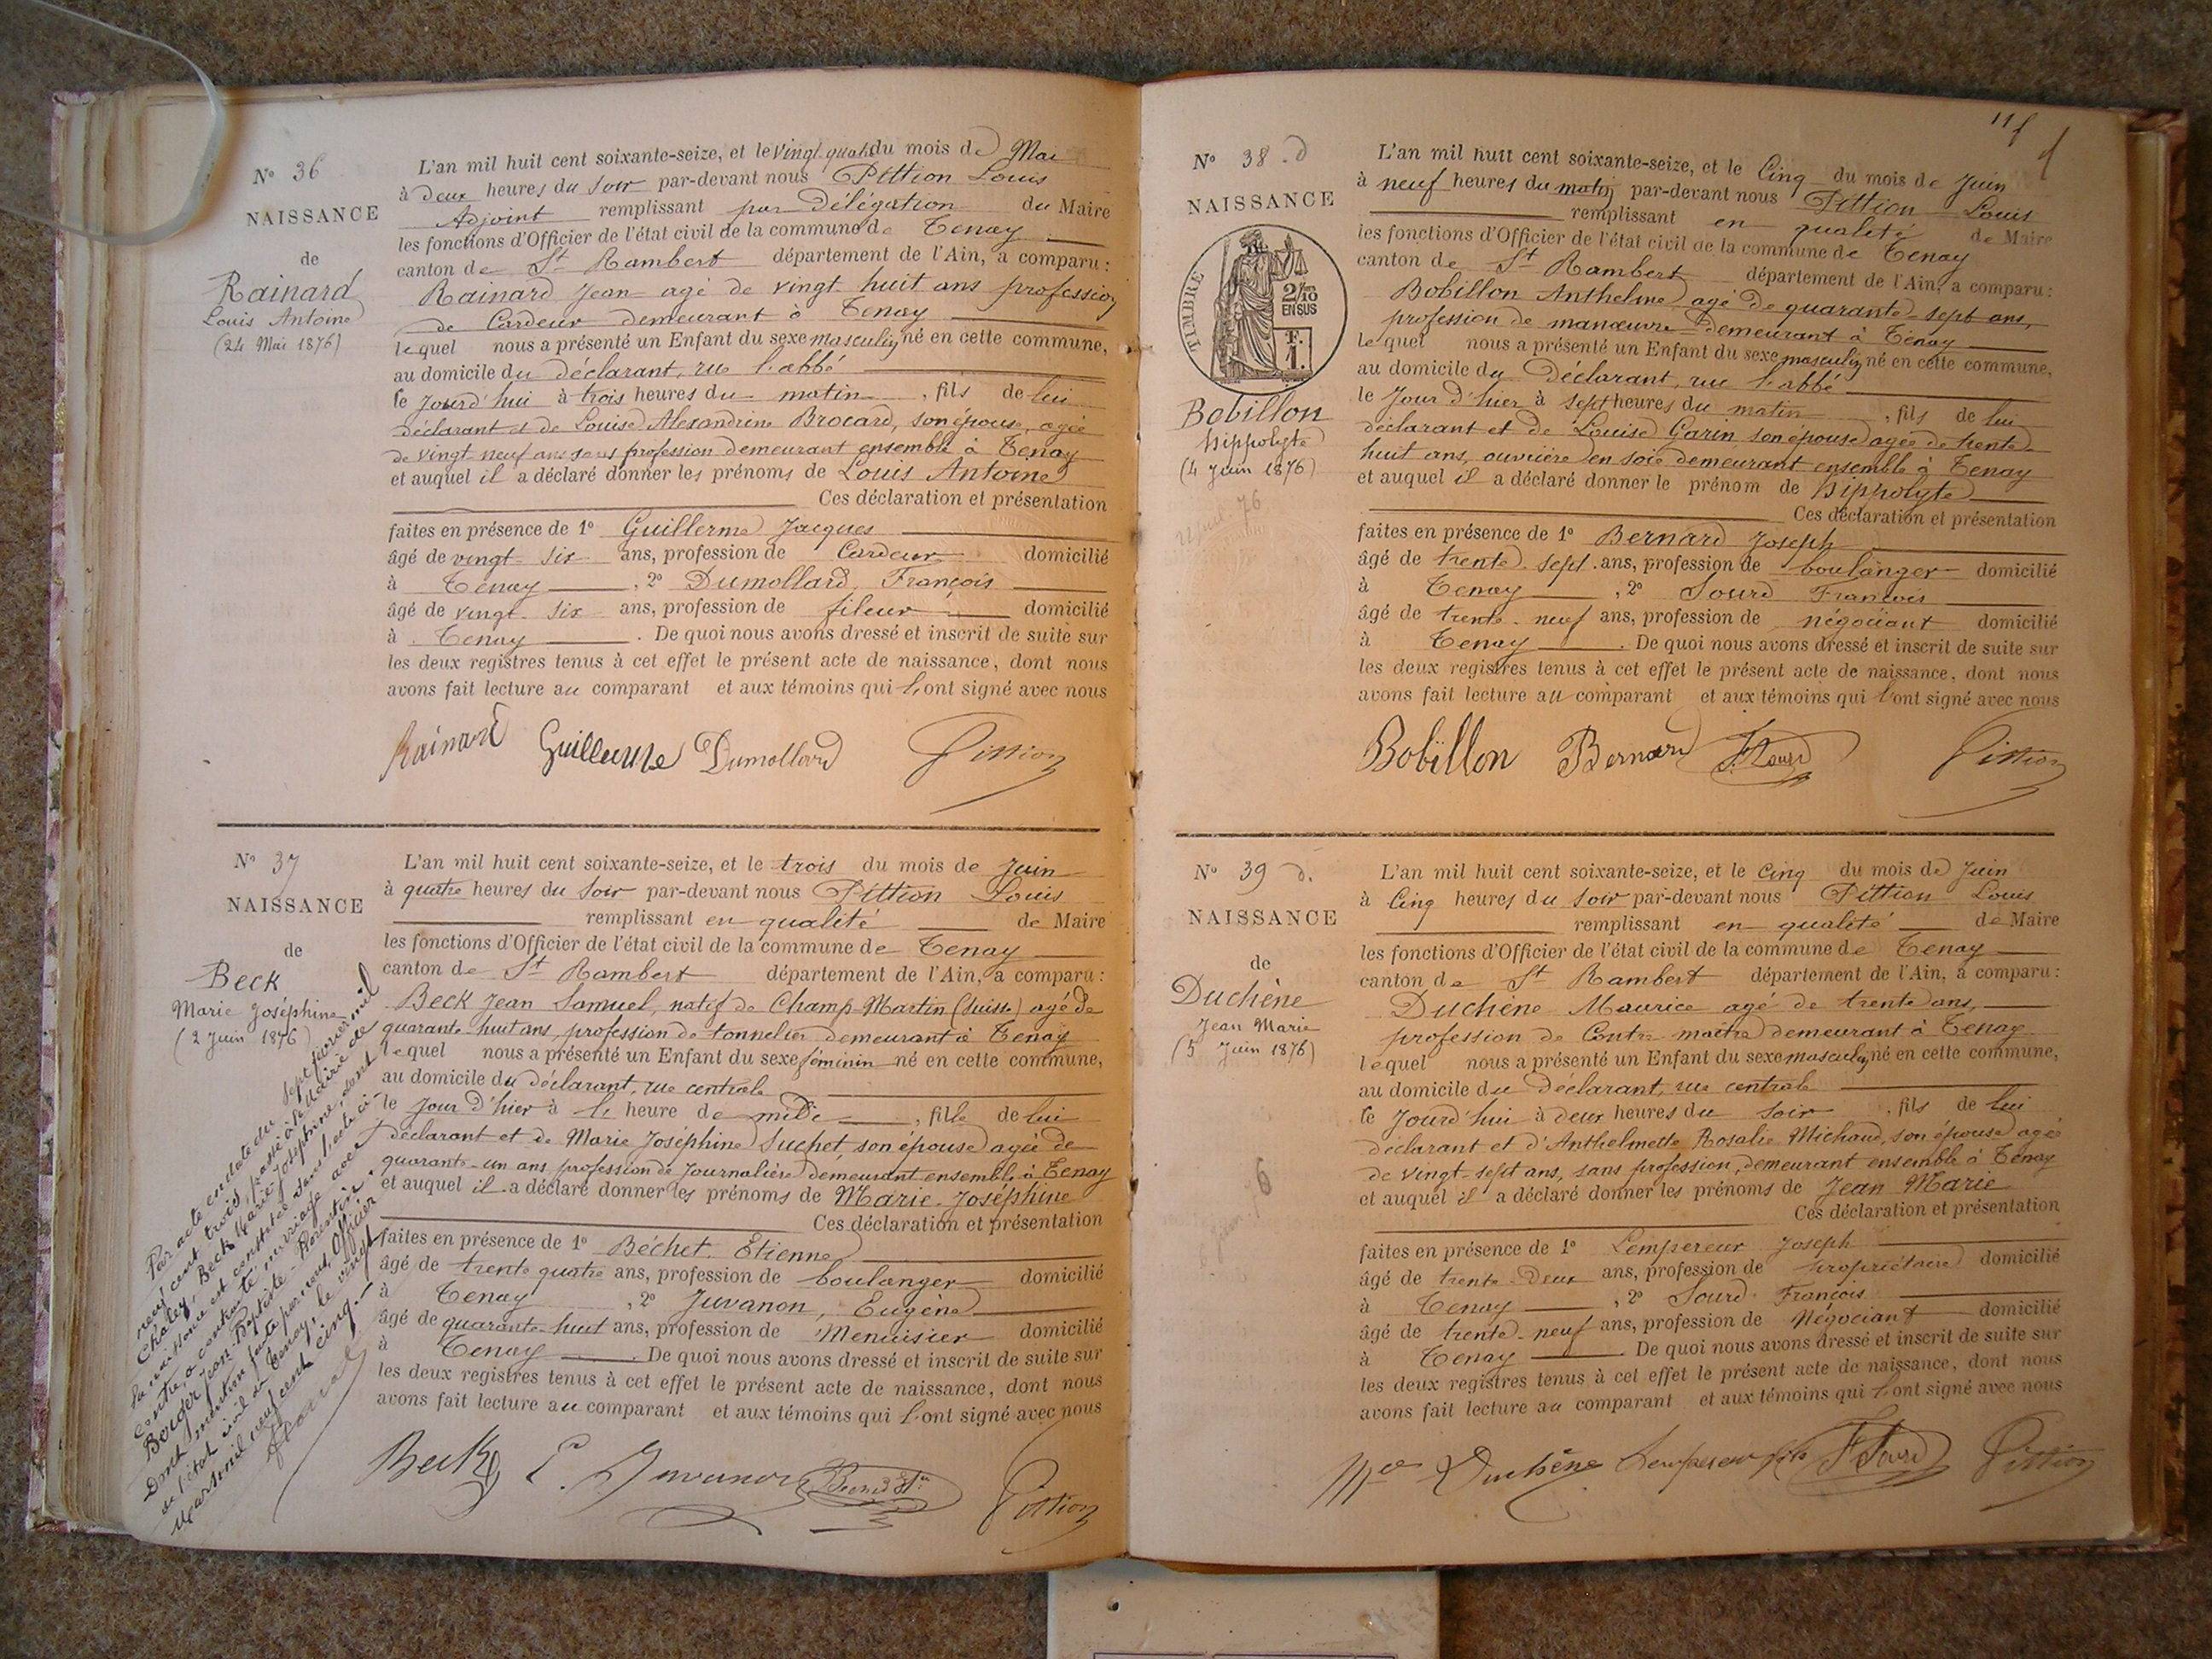 N° 36
NAISSANCE
de
Rainard
Louis Antoine
(24 Mai 1876)
L'an mil huit cent soixante-seize, et le vingt-quatre du mois de Mai
à deux heures du soir par-devant nous Pittion Louis
Adjoint remplissant par délégation du Maire
les fonctions d'Officier de l'état civil de la commune de Tenay
canton de St Rambert département de l'Ain, a comparu :
Rainard Jean agé de vingt huit ans profession
de Cardeur demeurant à Tenay
lequel nous a présenté un Enfant du sexe masculin né en cette commune,
au domicile du déclarant, rue l'abbé
le jourd'hui à trois heures du matin, fils de lui
déclarant et de Louise Alexandrine Brocard, son épouse, agée
de vingt neuf ans sans profession demeurant ensemble à Tenay
et auquel il a déclaré donner les prénoms de Louis Antoine
Ces déclaration et présentation
faites en présence de 1° Guillerme Jacques
âgé de vingt-six ans, profession de Cardeur domicilié
à Tenay, 2° Dumollard François
âgé de vingt-six ans, profession de fileur domicilié
à Tenay. De quoi nous avons dressé et inscrit de suite sur
les deux registres tenus à cet effet le présent acte de naissance, dont nous
avons fait lecture au comparant et aux témoins qui l'ont signé avec nous
Rainard Guillerme Dumollard Pittion
N° 37
NAISSANCE
de
Beck
Marie Joséphine
(2 Juin 1876)
Par acte en date du sept février mil
neuf cent trois, passé à la Mairie de
Chaley, Beck Marie-Joséphine, dont
la naissance est constatée dans l'acte ci-
contre, a contracté mariage avec
Jean-Baptiste-Florentin.
Dont mention faite par nous, Officier
de l'état civil de Tenay, le vingt
Mars mil neuf cent cinq.
L'an mil huit cent soixante-seize, et le trois du mois de Juin
à quatre heures du soir par-devant nous Pittion Louis
remplissant en qualité de Maire
les fonctions d'Officier de l'état civil de la commune de Tenay
canton de St Rambert département de l'Ain, a comparu :
Beck Jean Samuel, natif de Champ-Martin (Suisse) agé de
quarante-huit ans, profession de tonnelier demeurant à Tenay
lequel nous a présenté un Enfant du sexe féminin né en cette commune,
au domicile du déclarant, rue centrale
le jour d'hier à l' heure de midi, fille de lui
déclarant et de Marie Joséphine Suchet, son épouse agée de
quarante-un ans profession de journalière demeurant ensemble à Tenay
et auquel il a déclaré donner les prénoms de Marie-Joséphine
Ces déclaration et présentation
faites en présence de 1° Béchet Etienne
âgé de trente quatre ans, profession de boulanger domicilié
à Tenay, 2° Juvanon, Eugène
âgé de quarante-huit ans, profession de Menuisier domicilié
à Tenay. De quoi nous avons dressé et inscrit de suite sur
les deux registres tenus à cet effet le présent acte de naissance, dont nous
avons fait lecture au comparant et aux témoins qui l'ont signé avec nous
Beck E. Juvanon Pittion
N° 38 . d
NAISSANCE
TIMBRE
2/10
EN SUS
F.
1.
Bobillon
hippolyte
(4 Juin 1876)
L'an mil huit cent soixante-seize, et le Cinq du mois de Juin
à neuf heures du matin par-devant nous Pittion Louis
remplissant en qualité de Maire
les fonctions d'Officier de l'état civil de la commune de Tenay
canton de St Rambert département de l'Ain, a comparu :
Bobillon Anthelme agé de quarante-sept ans,
profession de manœuvre demeurant à Tenay
lequel nous a présenté un Enfant du sexe masculin né en cette commune,
au domicile du Déclarant, rue l'abbé
le Jour d'hier à sept heures du matin, fils de lui
déclarant et de Louise Garin son épouse agée de trente
huit ans, ouvrière en soie demeurant ensemble à Tenay
et auquel il a déclaré donner le prénom de hippolyte
Ces déclaration et présentation
faites en présence de 1° Bernard Joseph
âgé de trente-sept ans, profession de boulanger domicilié
à Tenay, 2° Sourd François
âgé de trente-neuf ans, profession de négociant domicilié
à Tenay. De quoi nous avons dressé et inscrit de suite sur
les deux registres tenus à cet effet le présent acte de naissance, dont nous
avons fait lecture au comparant et aux témoins qui l'ont signé avec nous
Bobillon Bernard F. Sourd Pittion
N° 39 d.
NAISSANCE
de
Duchêne
Jean Marie
(5 Juin 1876)
L'an mil huit cent soixante-seize, et le cinq du mois de Juin
à Cinq heures du soir par-devant nous Pittion Louis
remplissant en qualité de Maire
les fonctions d'Officier de l'état civil de la commune de Tenay
canton de St Rambert département de l'Ain, a comparu :
Duchêne Maurice agé de trente ans,
profession de Contre-maître demeurant à Tenay
lequel nous a présenté un Enfant du sexe masculin né en cette commune,
au domicile du Déclarant, rue centrale
le Jourd'hui à deux heures du soir, fils de lui
déclarant et d'Anthelmette Rosalie Michaud, son épouse agée
de vingt-sept ans, sans profession, demeurant ensemble à Tenay
et auquel il a déclaré donner les prénoms de Jean Marie
Ces déclaration et présentation
faites en présence de 1° Lempereur Joseph
âgé de trente-deux ans, profession de propriétaire domicilié
à Tenay, 2° Sourd François
âgé de trente-neuf ans, profession de Négociant domicilié
à Tenay. De quoi nous avons dressé et inscrit de suite sur
les deux registres tenus à cet effet le présent acte de naissance, dont nous
avons fait lecture au comparant et aux témoins qui l'ont signé avec nous
Mce Duchêne Lempereur fils F. Sourd Pittion